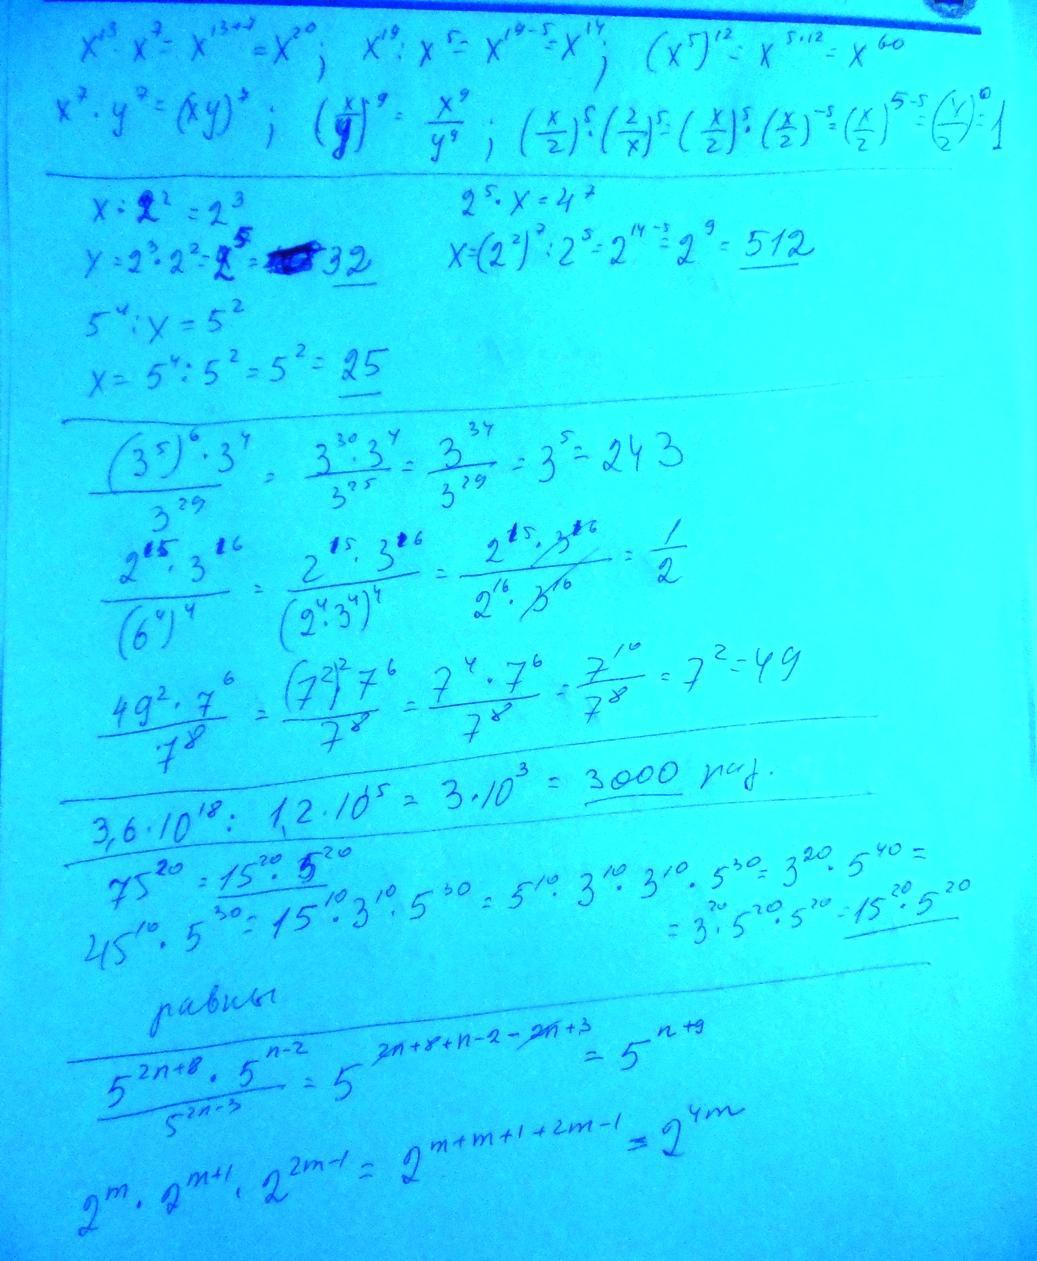 x¹³ · x⁷ = x¹³⁺⁷ = x²⁰; x¹⁹ : x⁵ = x¹⁹⁻⁵ = x¹⁴; (x⁵)¹² = x⁵·¹² = x⁶⁰
x⁷ · y⁷ = (xy)⁷; (x/y)⁹ = x⁹/y⁹; (x/2)⁵ · (2/x)⁵ = (x/2)⁵ · (x/2)⁻⁵ = (x/2)⁵⁻⁵ = (x/2)⁰ = 1
x : 2² = 2³
2⁵ · x = 4⁷
x = 2³ · 2² = 2⁵ = 32
x = (2²)⁷ : 2⁵ = 2¹⁴⁻⁵ = 2⁹ = 512
5⁴ : x = 5²
x = 5⁴ : 5² = 5² = 25
(3⁵)⁶ · 3⁴ / 3²⁹ = 3³⁰ · 3⁴ / 3²⁵ = 3³⁴ / 3²⁹ = 3⁵ = 243
2¹⁵ · 3¹⁶ / (6⁴)⁴ = 2¹⁵ · 3¹⁶ / (2⁴ · 3⁴)⁴ = 2¹⁵ · 3¹⁶ / 2¹⁶ · 3¹⁶ = 1/2
49² · 7⁶ / 7⁸ = (7²)² 7⁶ / 7⁸ = 7⁴ · 7⁶ / 7⁸ = 7¹⁰ / 7⁸ = 7² = 49
3,6 · 10¹⁸ : 1,2 · 10¹⁵ = 3 · 10³ = 3000 раз.
75²⁰ = 15²⁰ · 5²⁰
45¹⁰ · 5³⁰ = 15¹⁰ · 3¹⁰ · 5³⁰ = 5¹⁰ · 3¹⁰ · 3¹⁰ · 5³⁰ = 3²⁰ · 5⁴⁰ =
= 3²⁰ · 5²⁰ · 5²⁰ = 15²⁰ · 5²⁰
равны
5²ⁿ⁺⁸ · 5ⁿ⁻² / 5²ⁿ⁻³ = 5²ⁿ⁺⁸⁺ⁿ⁻²⁻²ⁿ⁺³ = 5ⁿ⁺⁹
2ᵐ · 2ᵐ⁺¹ · 2²ᵐ⁻¹ = 2ᵐ⁺ᵐ⁺¹⁺²ᵐ⁻¹ = 2⁴ᵐ